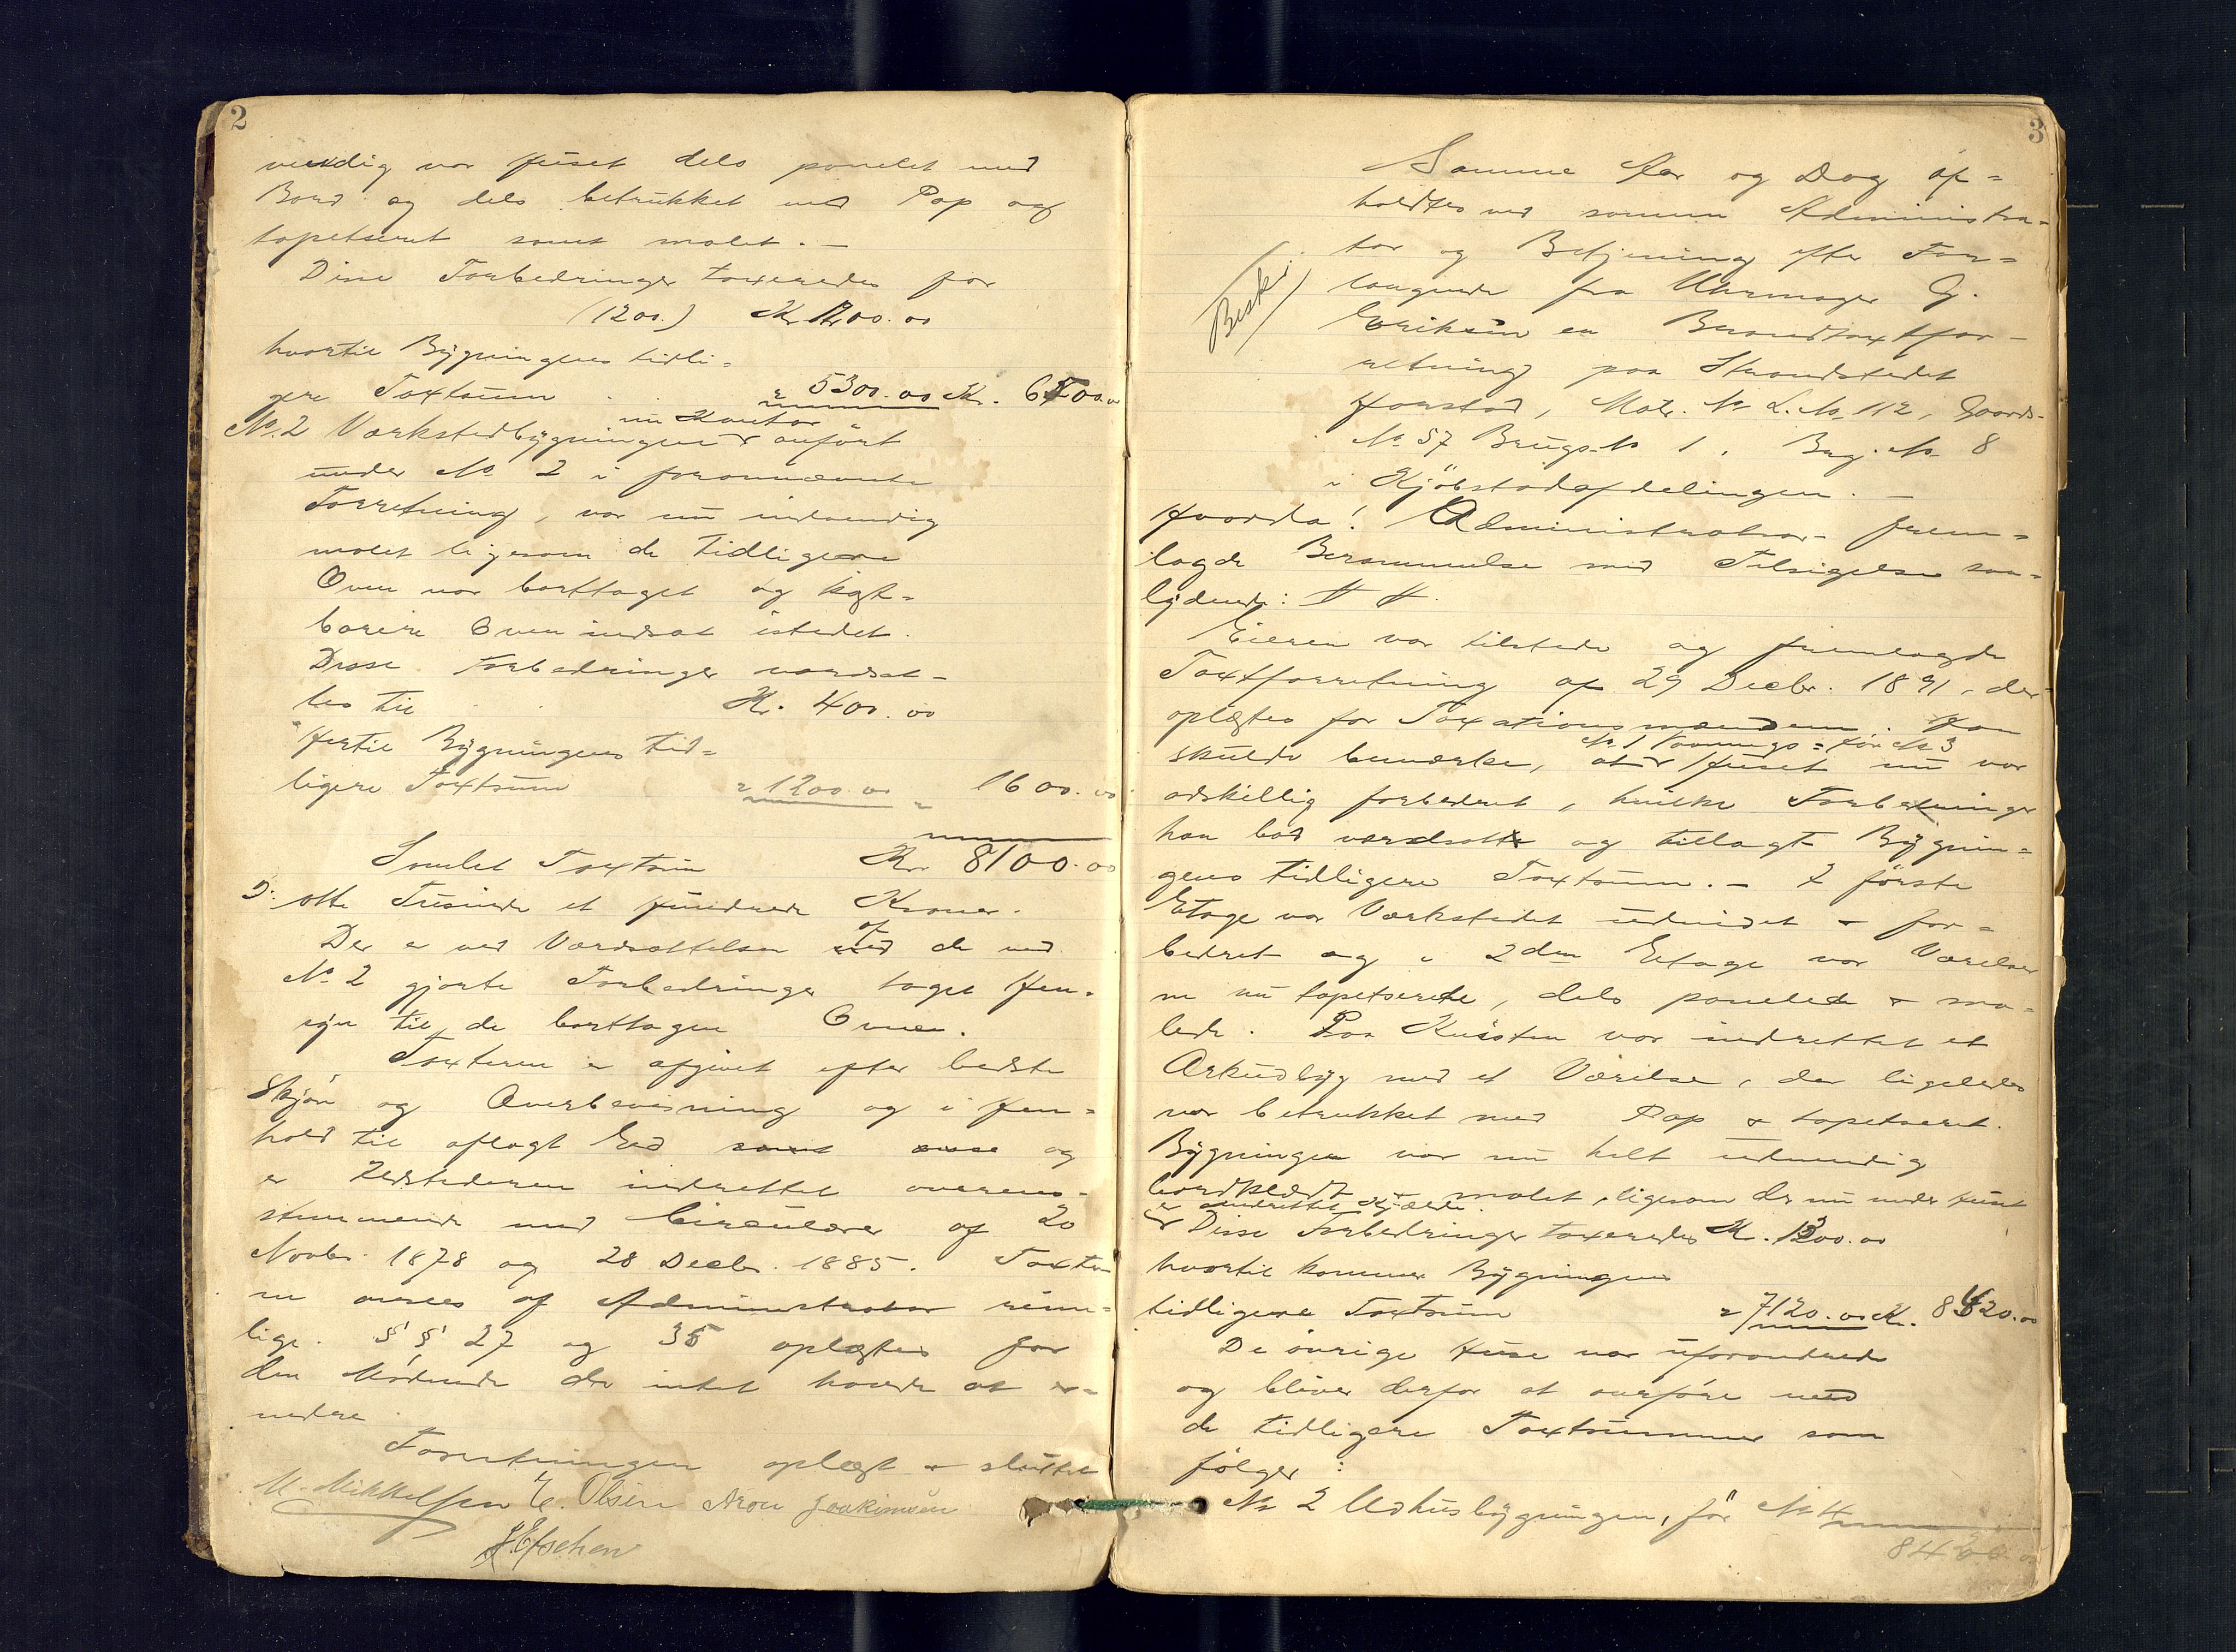 2
vendig var Huset dels panelet med
Bord og dels betrukket med Pap og
tapetseret samt malet. —
Disse Forbedringer taxeredes for
(1200.) Kr. 1200.00
hvortil Bygningens tidli-
gere Taxtsum . . " 5300.00 Kr. 6500.00
nu Kontor
No. 2 Værkstedbygningen anført
under No 2 i forannævnte
Forretning, var nu indvendig
malet ligesom de tidligere
Ovne var borttaget og kost-
barere Ovne indsat istedet.
Disse Forbedringer værdsat-
tes til . . Kr. 400.00
Hertil Bygningens tid-
ligere Taxtsum " 1200.00 " 1600.00
Samlet Taxtsum Kr. 8100.00
ɔ: otte Tusinde et Hundrede Kroner.
af
Der er ved Værdsættelsen ved de ved
No. 2 gjorte Forbedringer taget Hen-
syn til de borttagne Ovne.
Taxterne er afgivet efter bedste
Skjøn og Overbevisning og i Hen-
hold til aflagt Ed samt og
er Ildstederne indrettet overens-
stemmende med Cirkulære af 20
Novbr. 1878 og 28 Decbr. 1885. Taxter-
ne ansees af Administrator rime-
lige. §§ 27 og 35 oplæstes for
den Mødende der intet havde at er-
indre.
Forretningen oplæst & sluttet
M. Mikkelsen E. Olsen Aron Joakimsen
3
Samme Aar og Dag af-
holdtes ved samme Administra-
tor og Betjening efter For-
langende fra Uhrmager G.
Beskr.
Eriksen en Brandtaxtfor-
retning paa Strandstedet
Harstad, Matr. No L.No 112, Gaards-
No 57 Brugs No 1. Byg. No 8
i Kjøbstadafdelingen. —
Hvorda! Administrator frem-
lagde Berammelse med Tilsigelse saa-
lydende:
Eieren var tilstede og fremlagde
Taxtforretning af 29 Decbr. 1891, der
oplæstes for Taxationsmændene. Han
No. 1 Vaanings- før No 3
skulde bemærke, at Huset nu var
adskillig forbedret, hvilke Forbedringer
han bad værdsatte og tillagt Bygnin-
gens tidligere Taxtsum. — I første
Etage var Værkstedet udvidet & for-
bedret og i 2den Etage var Værelser
ne nu tapetserede, dels panelede & ma-
lede. Paa Kvisten var indrettet et
Arkudbyg med et Værelse, der ligeledes
var betrukket med Pap & tapetseret.
Bygningen var nu helt udvendig
bordklædt & malet, ligesom der nu under Huset
er indrettet Kjælder.
Disse Forbedringer taxeredes Kr. 1300.00
hvortil kommer Bygningens
tidligere Taxtsum " 7120.00 Kr. 8420.00
De øvrige Huse var uforandrede
og bliver derfor at anføre med
de tidligere Taxtsummer som
følger:
No 2 Udhusbygningen, før No 4